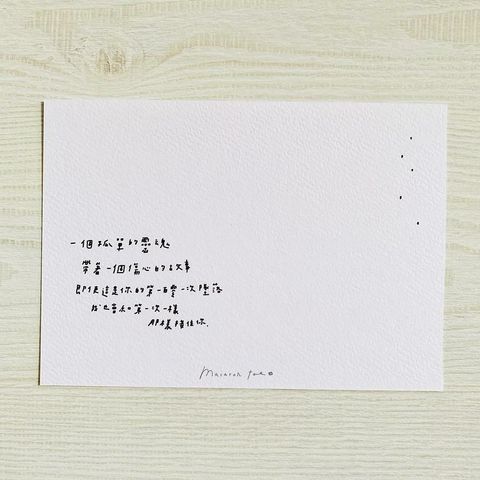 一個孤單的靈魂
帶著一個傷心的故事
即使這是你的第一百零一次墜落
我也會和第一次一樣
那樣陪住你.
Macaron toe